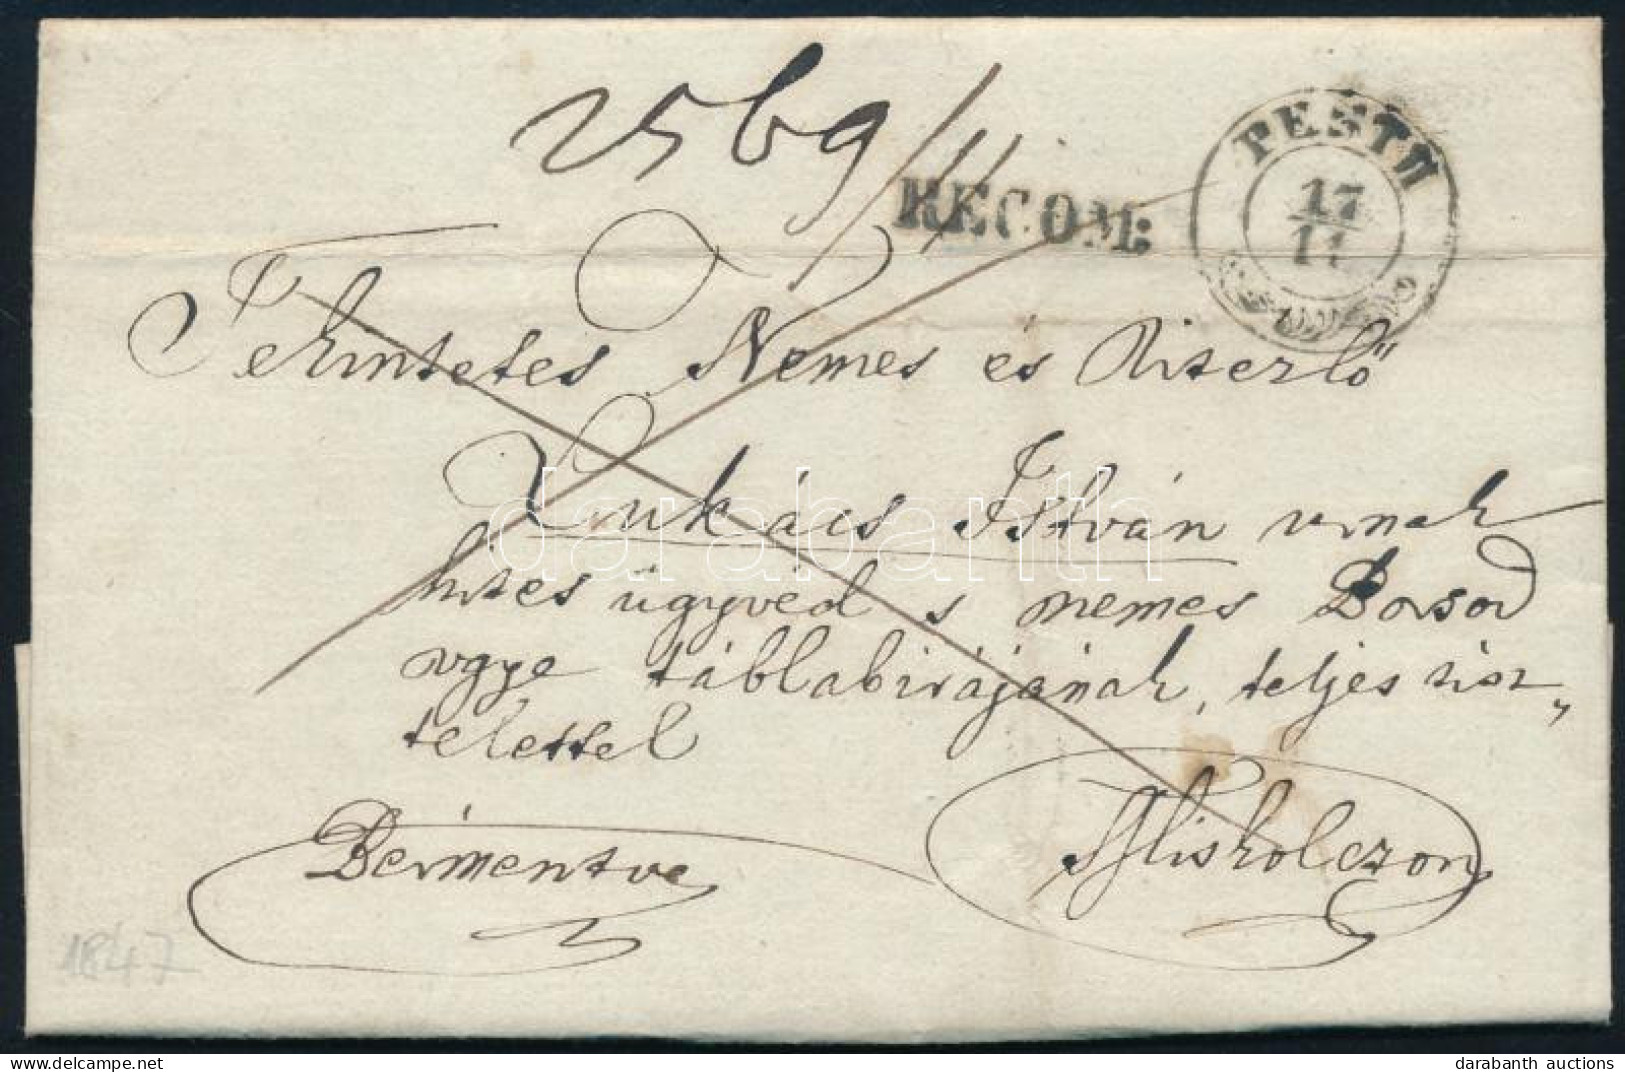 2569/11
RECOM:
PESTH
17
11
Tekintetes Nemes és Vitézlő
Lukács István urnak
hites ügyvéd s nemes Borsod
vgye táblabirájának, teljes tisz„
telettel
Bérmentve
Miskolczon
1847
darabanth
darabanth auctions